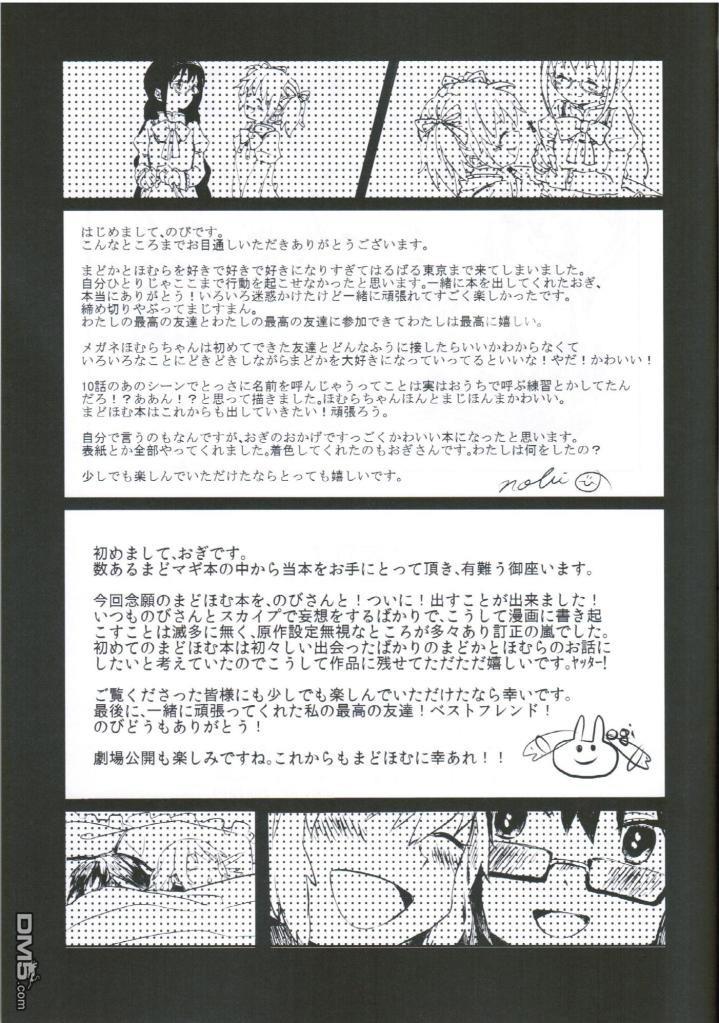 はじめまして、のびです。
こんなところまでお目通しいただきありがとうございます。
まどかとほむらを好きで好きで好きになりすぎてはるばる東京まで来てしまいました。
自分ひとりじゃここまで行動を起こせなかったと思います。一緒に本を出してくれたおぎ、
本当にありがとう！いろいろ迷惑かけたけど一緒に頑張れてすごく楽しかったです。
締め切りやぶってまじすまん。
わたしの最高の友達とわたしの最高の友達に参加できてわたしは最高に嬉しい。
メガネほむらちゃんは初めてできた友達とどんなふうに接したらいいかわからなくて
いろいろなことにどきどきしながらまどかを大好きになっていってるといいな！やだ！かわいい！
10話のあのシーンでとっさに名前を呼んじゃうってことは実はおうちで呼ぶ練習とかしてたん
だろ！？ああん！？と思って描きました。ほむらちゃんほんとまじほんまかわいい。
まどほむ本はこれからも出していきたい！頑張ろう。
自分で言うのもなんですが、おぎのおかげですっごくかわいい本になったと思います。
表紙とか全部やってくれました。着色してくれたのもおぎさんです。わたしは何をしたの？
少しでも楽しんでいただけたならとっても嬉しいです。
nobi
初めまして、おぎです。
数あるまどマギ本の中から当本をお手にとって頂き、有難う御座います。
今回念願のまどほむ本を、のびさんと！ついに！出すことが出来ました！
いつものびさんとスカイプで妄想をするばかりで、こうして漫画に書き起
こすことは滅多に無く、原作設定無視なところが多々あり訂正の嵐でした。
初めてのまどほむ本は初々しい出会ったばかりのまどかとほむらのお話に
したいと考えていたのでこうして作品に残せてただただ嬉しいです。ﾔｯﾀｰ!
ご覧くださった皆様にも少しでも楽しんでいただけたなら幸いです。
最後に、一緒に頑張ってくれた私の最高の友達！ベストフレンド！
のびどうもありがとう！
劇場公開も楽しみですね。これからもまどほむに幸あれ！！
ogi
DM5.com